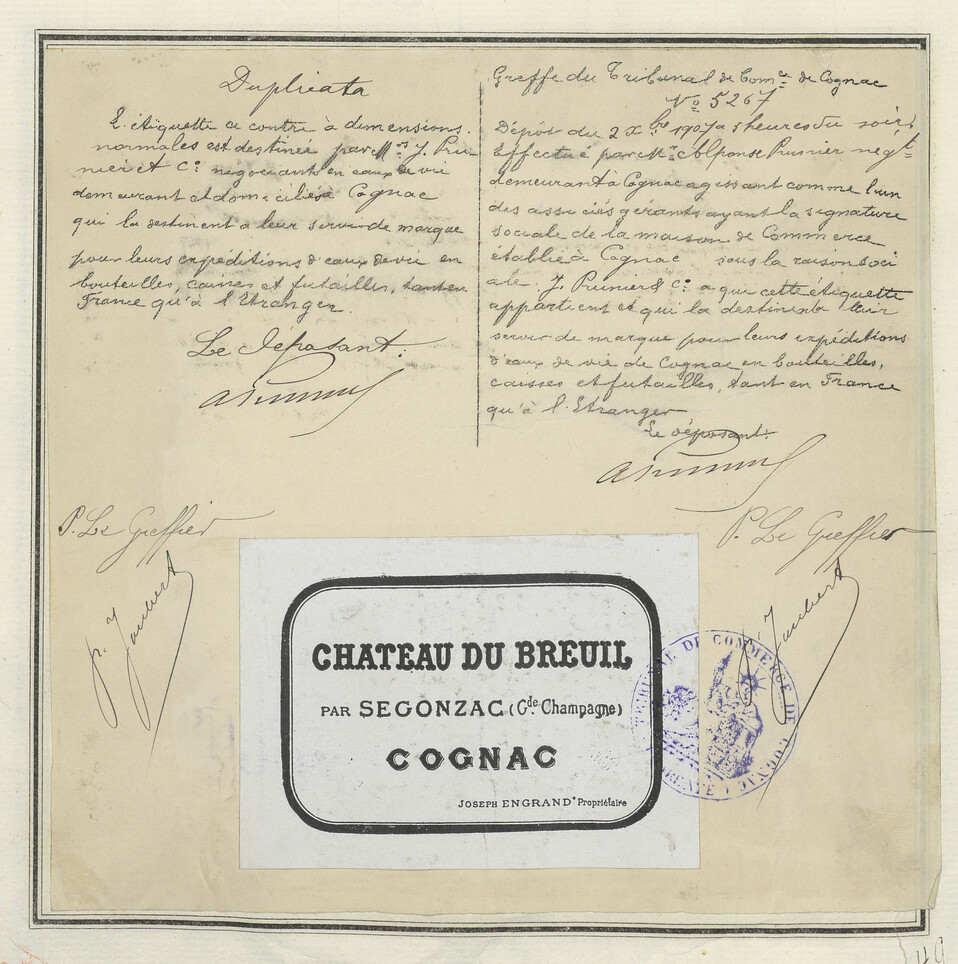 Duplicata
L'étiquette ci contre à dimensions
normales est destinée par Mrs J. Pru
nier et Co négociants en eaux de vie
demeurant et domiciliés à Cognac
qui la destinent à leur servir de marque
pour leurs expéditions d'eaux de vie en
bouteilles, caisses et futailles, tant en
France qu'à l'Etranger.
Le Déposant:
A Prunier
P. Le Greffier
P. Jaubert
Greffe du Tribunal de Comce de Cognac
No 5267
Dépôt du 2 Xbre 1907 à 5 heures du soir,
Effectué par Mr Alphonse Prunier négt
demeurant à Cognac agissant comme l'un
des associés gérants ayant la signature
sociale de la maison de Commerce
établie à Cognac sous la raison soci
ale J. Prunier & Co à qui cette étiquette
appartient et qui la destinent à leur
servir de marque pour leurs expéditions
d'eaux de vie de Cognac en bouteilles,
caisses et futailles, tant en France
qu'à l'Etranger
Le déposant:
A Prunier
P. Le Greffier
P. Jaubert
CHATEAU DU BREUIL
PAR SEGONZAC (Gde Champagne)
COGNAC
JOSEPH ENGRAND, Propriétaire
TRIBUNAL DE COMMERCE DE COGNAC
(CHARENTE)